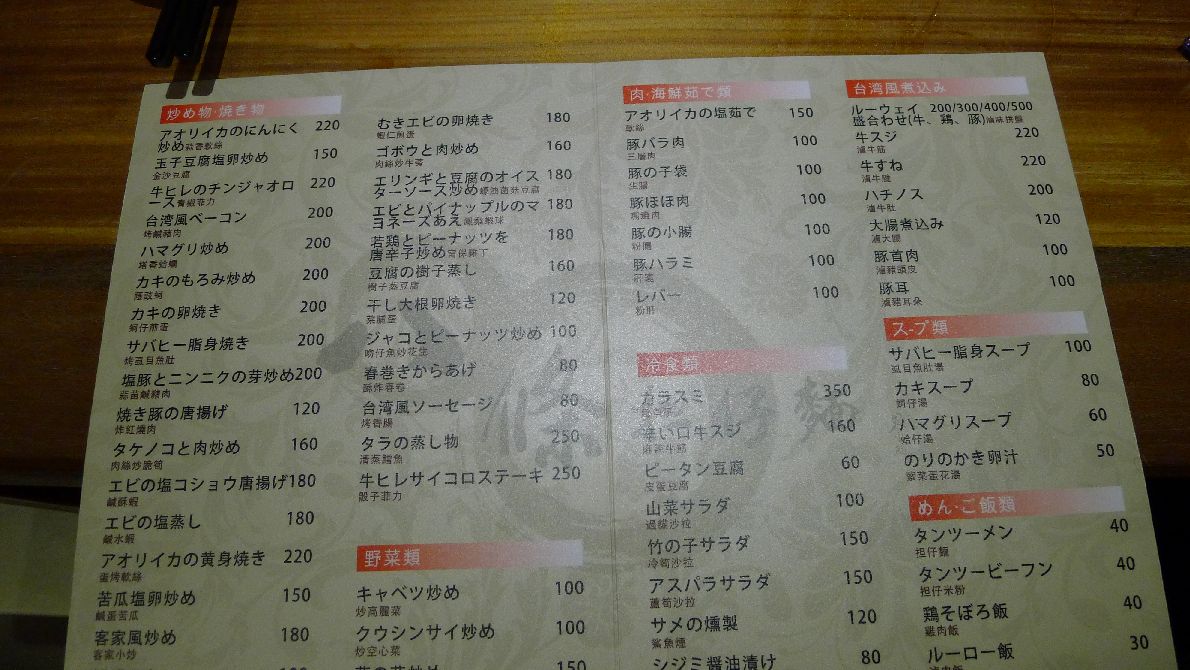 炒め物·焼き物
アオリイカのにんにく 220
炒め蒜香軟絲
玉子豆腐塩卵炒め 150
金沙豆腐
牛ヒレのチンジャオロ 220
ース青椒菲力
台湾風ベーコン 200
烤鹹豬肉
ハマグリ炒め 200
塔香蛤蠣
カキのもろみ炒め 200
蔭豉蚵
カキの卵焼き 200
蚵仔煎蛋
サバヒー脂身焼き 200
烤虱目魚肚
塩豚とニンニクの芽炒め200
蒜苗鹹豬肉
焼き豚の唐揚げ 120
炸紅燒肉
タケノコと肉炒め 160
肉絲炒脆筍
エビの塩コショウ唐揚げ180
鹹酥蝦
エビの塩蒸し 180
鹹水蝦
アオリイカの黄身焼き 220
蛋烤軟絲
苦瓜塩卵炒め 150
鹹蛋苦瓜
客家風炒め 180
客家小炒
むきエビの卵焼き 180
蝦仁煎蛋
ゴボウと肉炒め 160
肉絲炒牛蒡
エリンギと豆腐のオイス 180
ターソース炒め蠔油菌菇豆腐
エビとパイナップルのマ 180
ヨネーズあえ鳳梨蝦球
若鶏とピーナッツを 180
唐辛子炒め宮保雞丁
豆腐の樹子蒸し 160
樹子蒸豆腐
干し大根卵焼き 120
菜脯蛋
ジャコとピーナッツ炒め 100
吻仔魚炒花生
春巻きからあげ 80
酥炸春卷
台湾風ソーセージ 80
烤香腸
タラの蒸し物 250
清蒸鱈魚
牛ヒレサイコロステーキ 250
骰子菲力
野菜類
キャベツ炒め 100
炒高麗菜
クウシンサイ炒め 100
炒空心菜
150
肉·海鮮茹で類
アオリイカの塩茹で 150
軟絲
豚バラ肉 100
三層肉
豚の子袋 100
生腸
豚ほほ肉 100
嘴邊肉
豚の小腸 100
粉腸
豚ハラミ 100
レバー 100
粉肝
冷食類
カラスミ 350
辛い口牛スジ 160
麻辣牛筋
ピータン豆腐 60
皮蛋豆腐
山菜サラダ 100
過貓沙拉
竹の子サラダ 150
冷筍沙拉
アスパラサラダ 150
蘆筍沙拉
サメの燻製 120
鯊魚煙
シジミ醤油漬け 80
台湾風煮込み
ルーウェイ 200/300/400/500
盛合わせ(牛、鶏、豚)滷味拼盤
牛スジ 220
滷牛筋
牛すね 220
滷牛腱
ハチノス 200
滷牛肚
大腸煮込み 120
滷大腸
豚首肉 100
滷豬頭皮
豚耳 100
滷豬耳朵
スープ類
サバヒー脂身スープ 100
虱目魚肚湯
カキスープ 80
蚵仔湯
ハマグリスープ 60
蛤仔湯
のりのかき卵汁 50
紫菜蛋花湯
めん·ご飯類
タンツーメン 40
担仔麵
タンツービーフン 40
担仔米粉
鶏そぼろ飯 40
雞肉飯
ルーロー飯 30